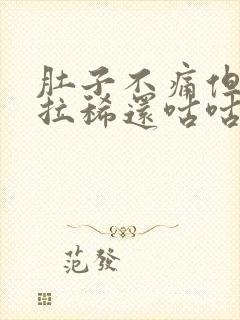 肚子不痛但
拉稀還咕咕
范發